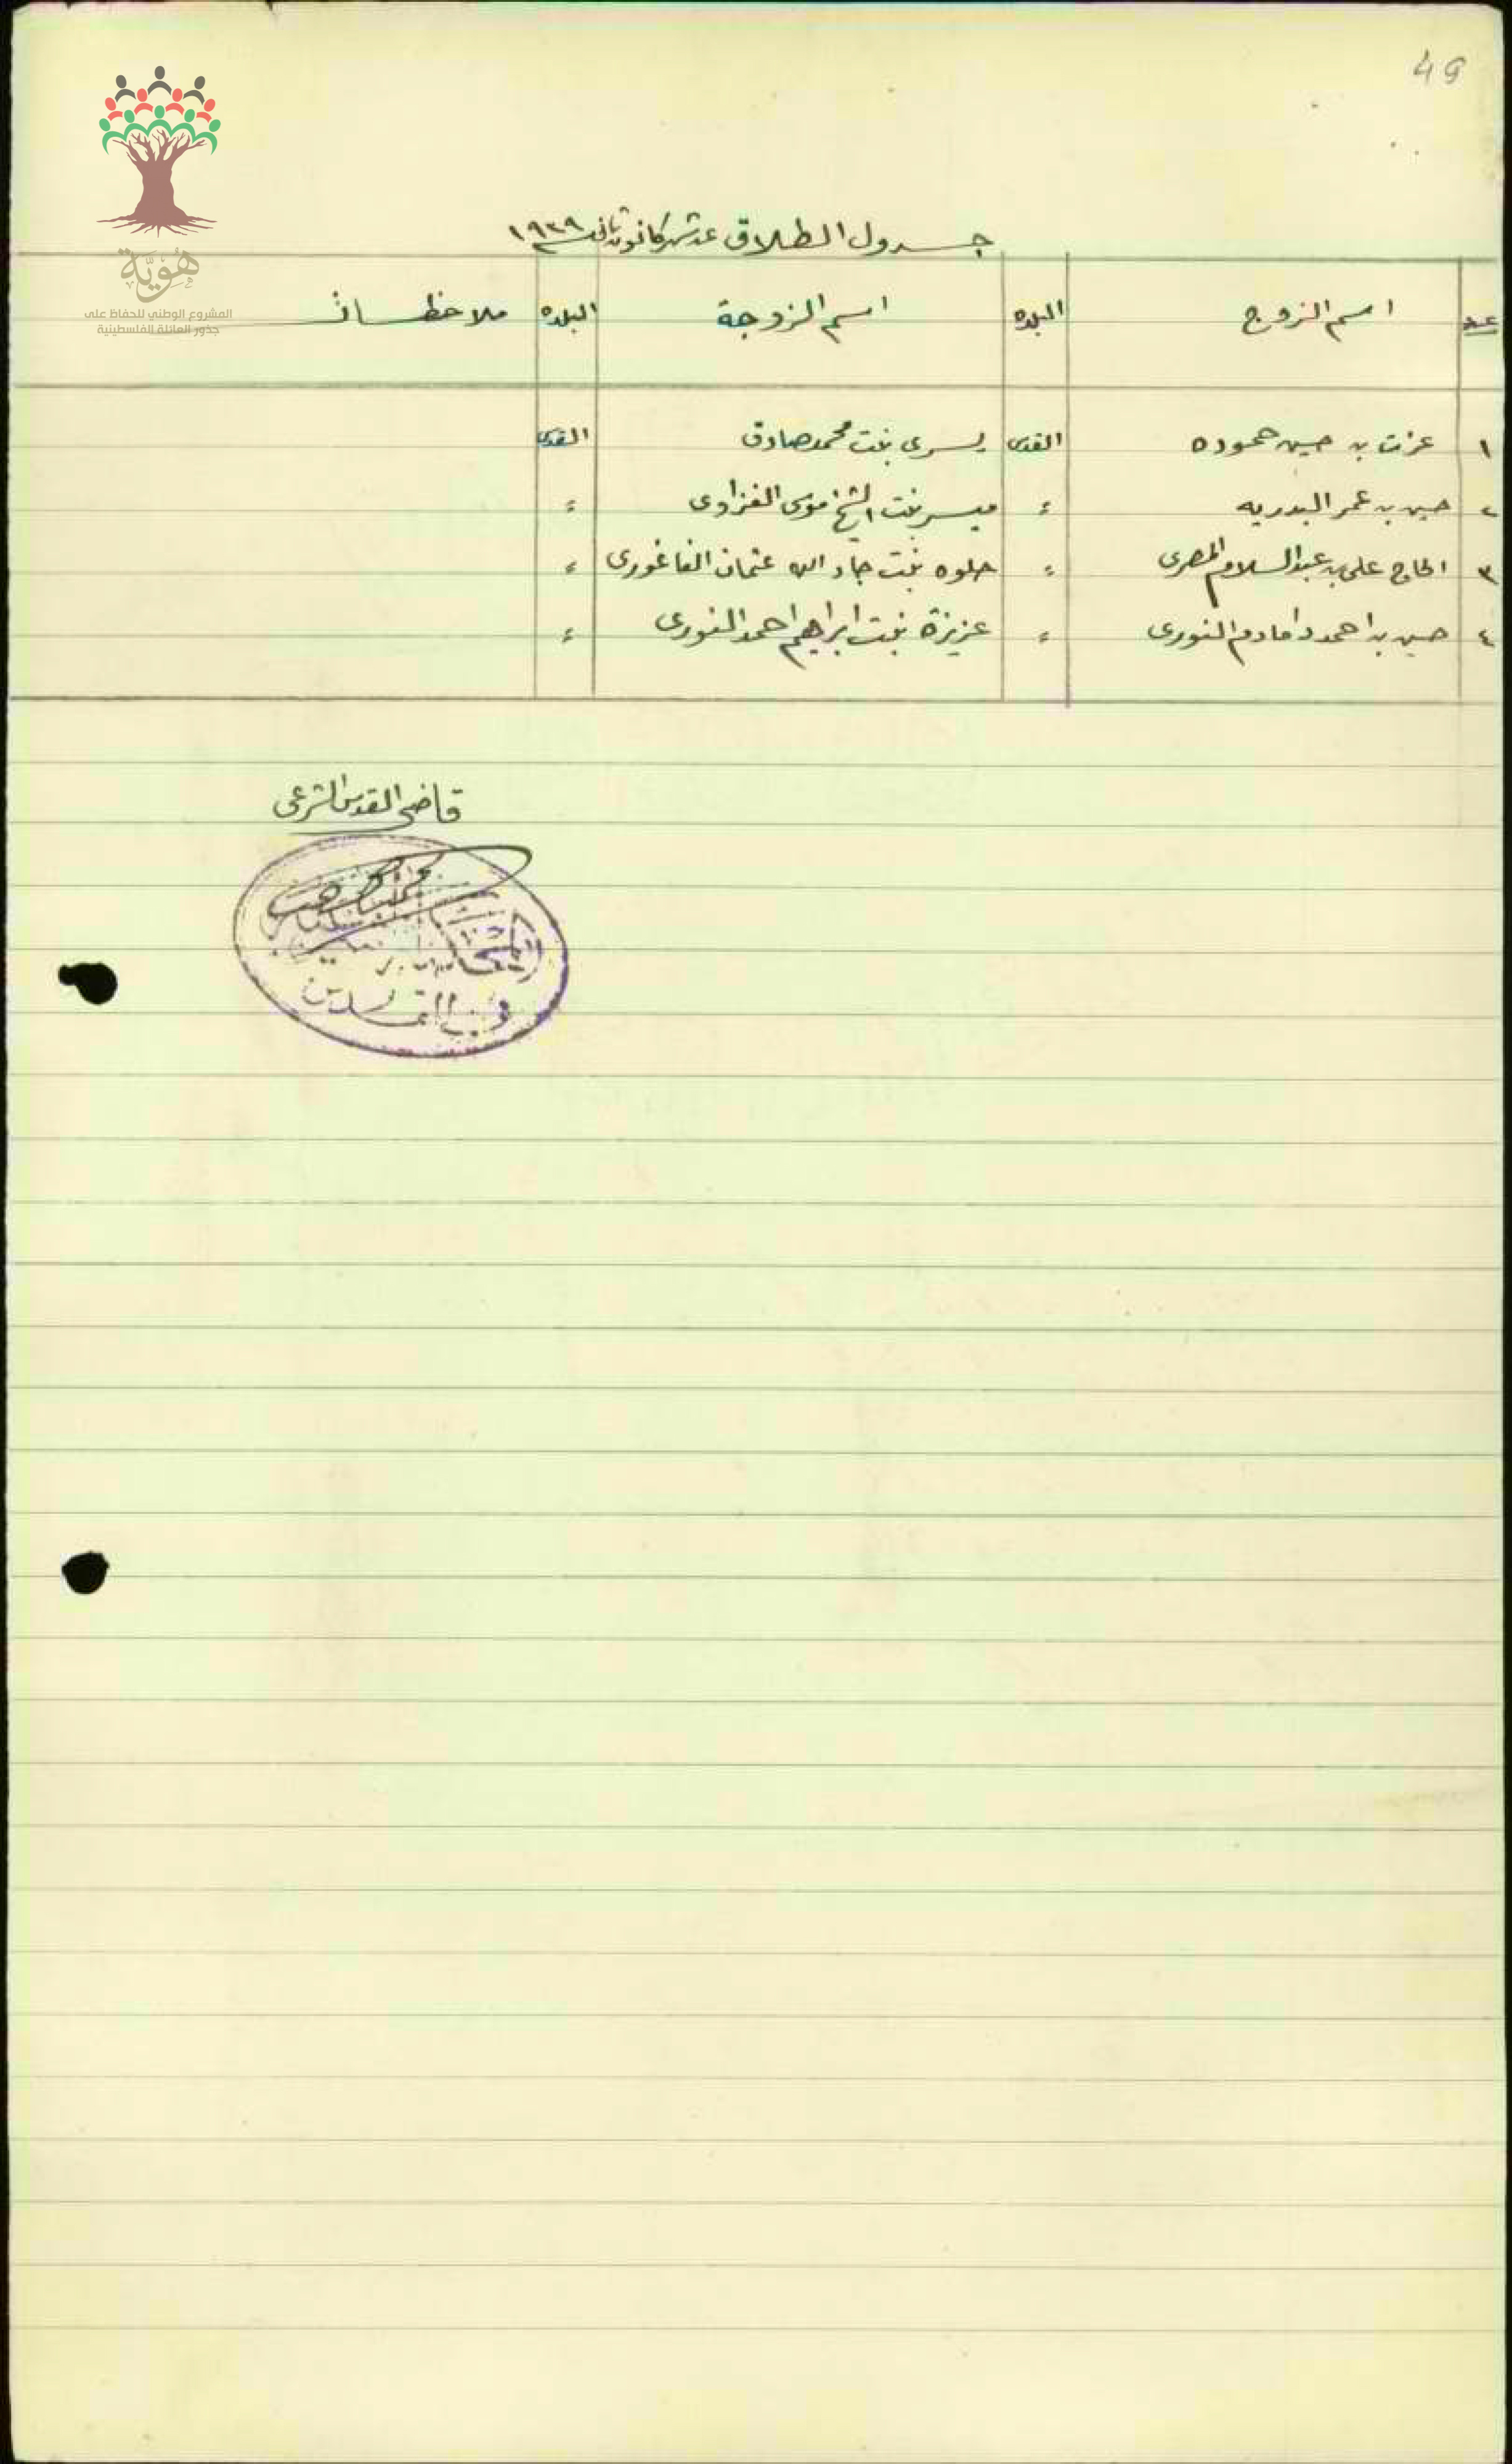 49
هُوِيَّة
المشروع الوطني للحفاظ على
جذور العائلة الفلسطينية
جدول الطلاق عن شهر كانون ثاني سنة ١٩٣٩
عدد اسم الزوج البلده اسم الزوجة البلده ملاحظات
١ عزت بن حسين حموده القدس يسرى بنت محمد صادق القدس
٢ حسين بن عمر البدريه ء ميسر بنت الشيخ موسى الغزاوى ء
٣ الحاج على بن عبد السلام المصرى ء حلوه بنت جاد الله عثمان الفاغورى ء
٤ حسين بن احمد النورى ء عزيزة بنت ابراهيم احمد النورى ء
قاضي القدس الشرعي
القدس